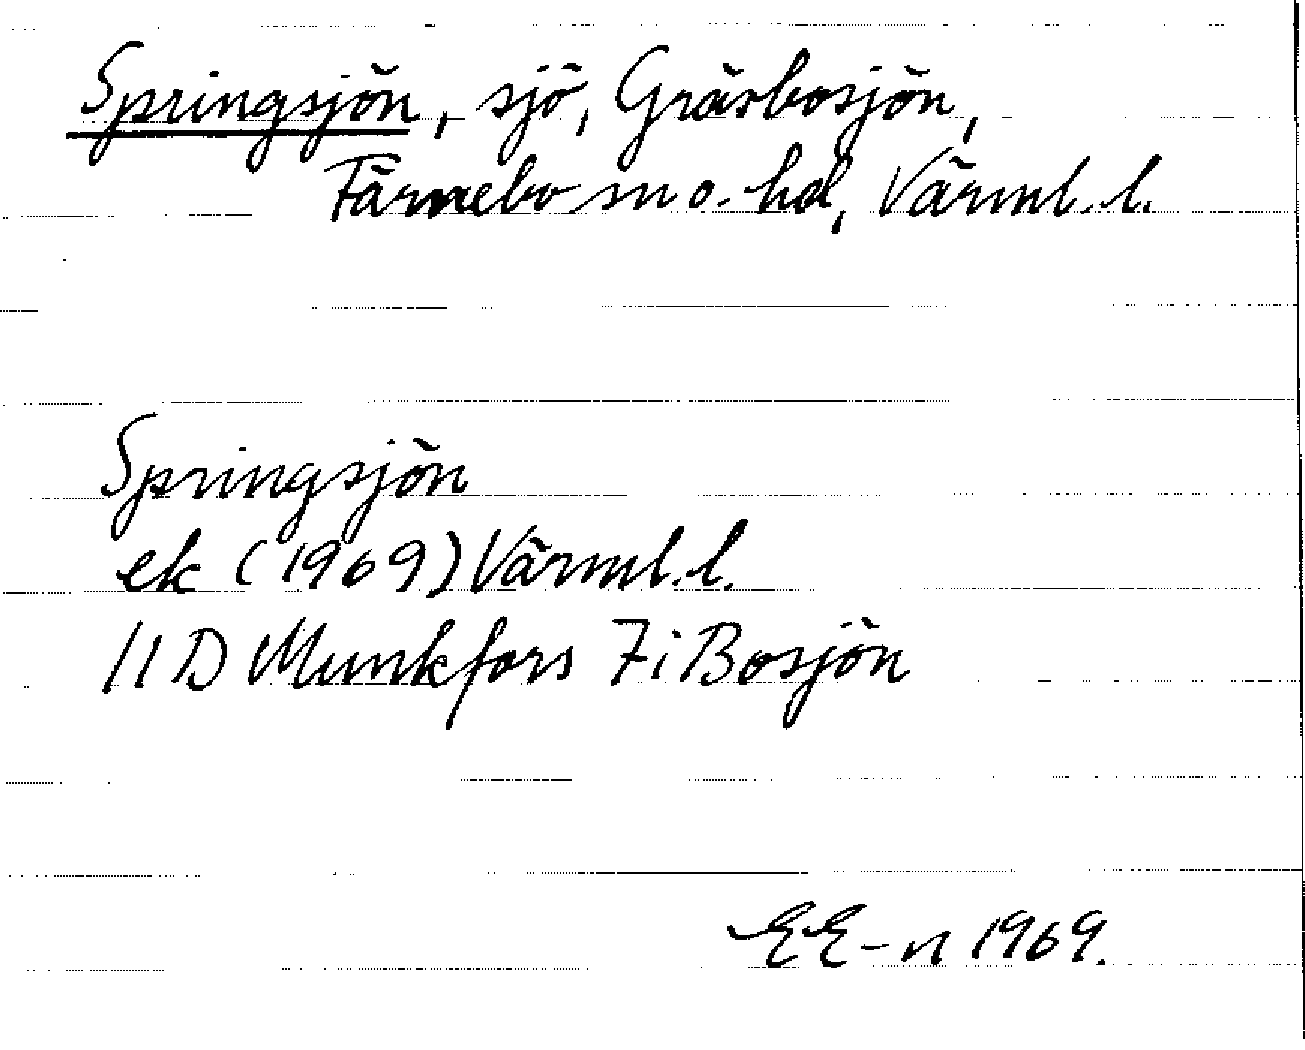 Springsjön, sjö, Gräsbosjön,
Färnebo sn o. hd, Värml. l.
Springsjön
ek (1969) Värml. l.
11D Munkfors 7i Bosjön
EE-n 1969.